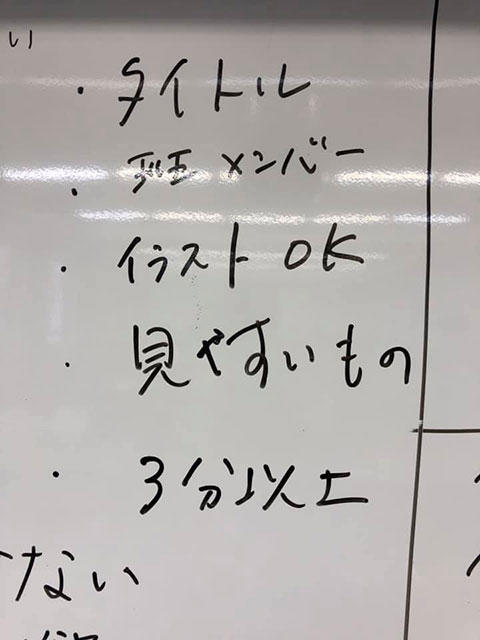 い
・タイトル
・班メンバー
・イラストOK
・見やすいもの
・3分以上
ない